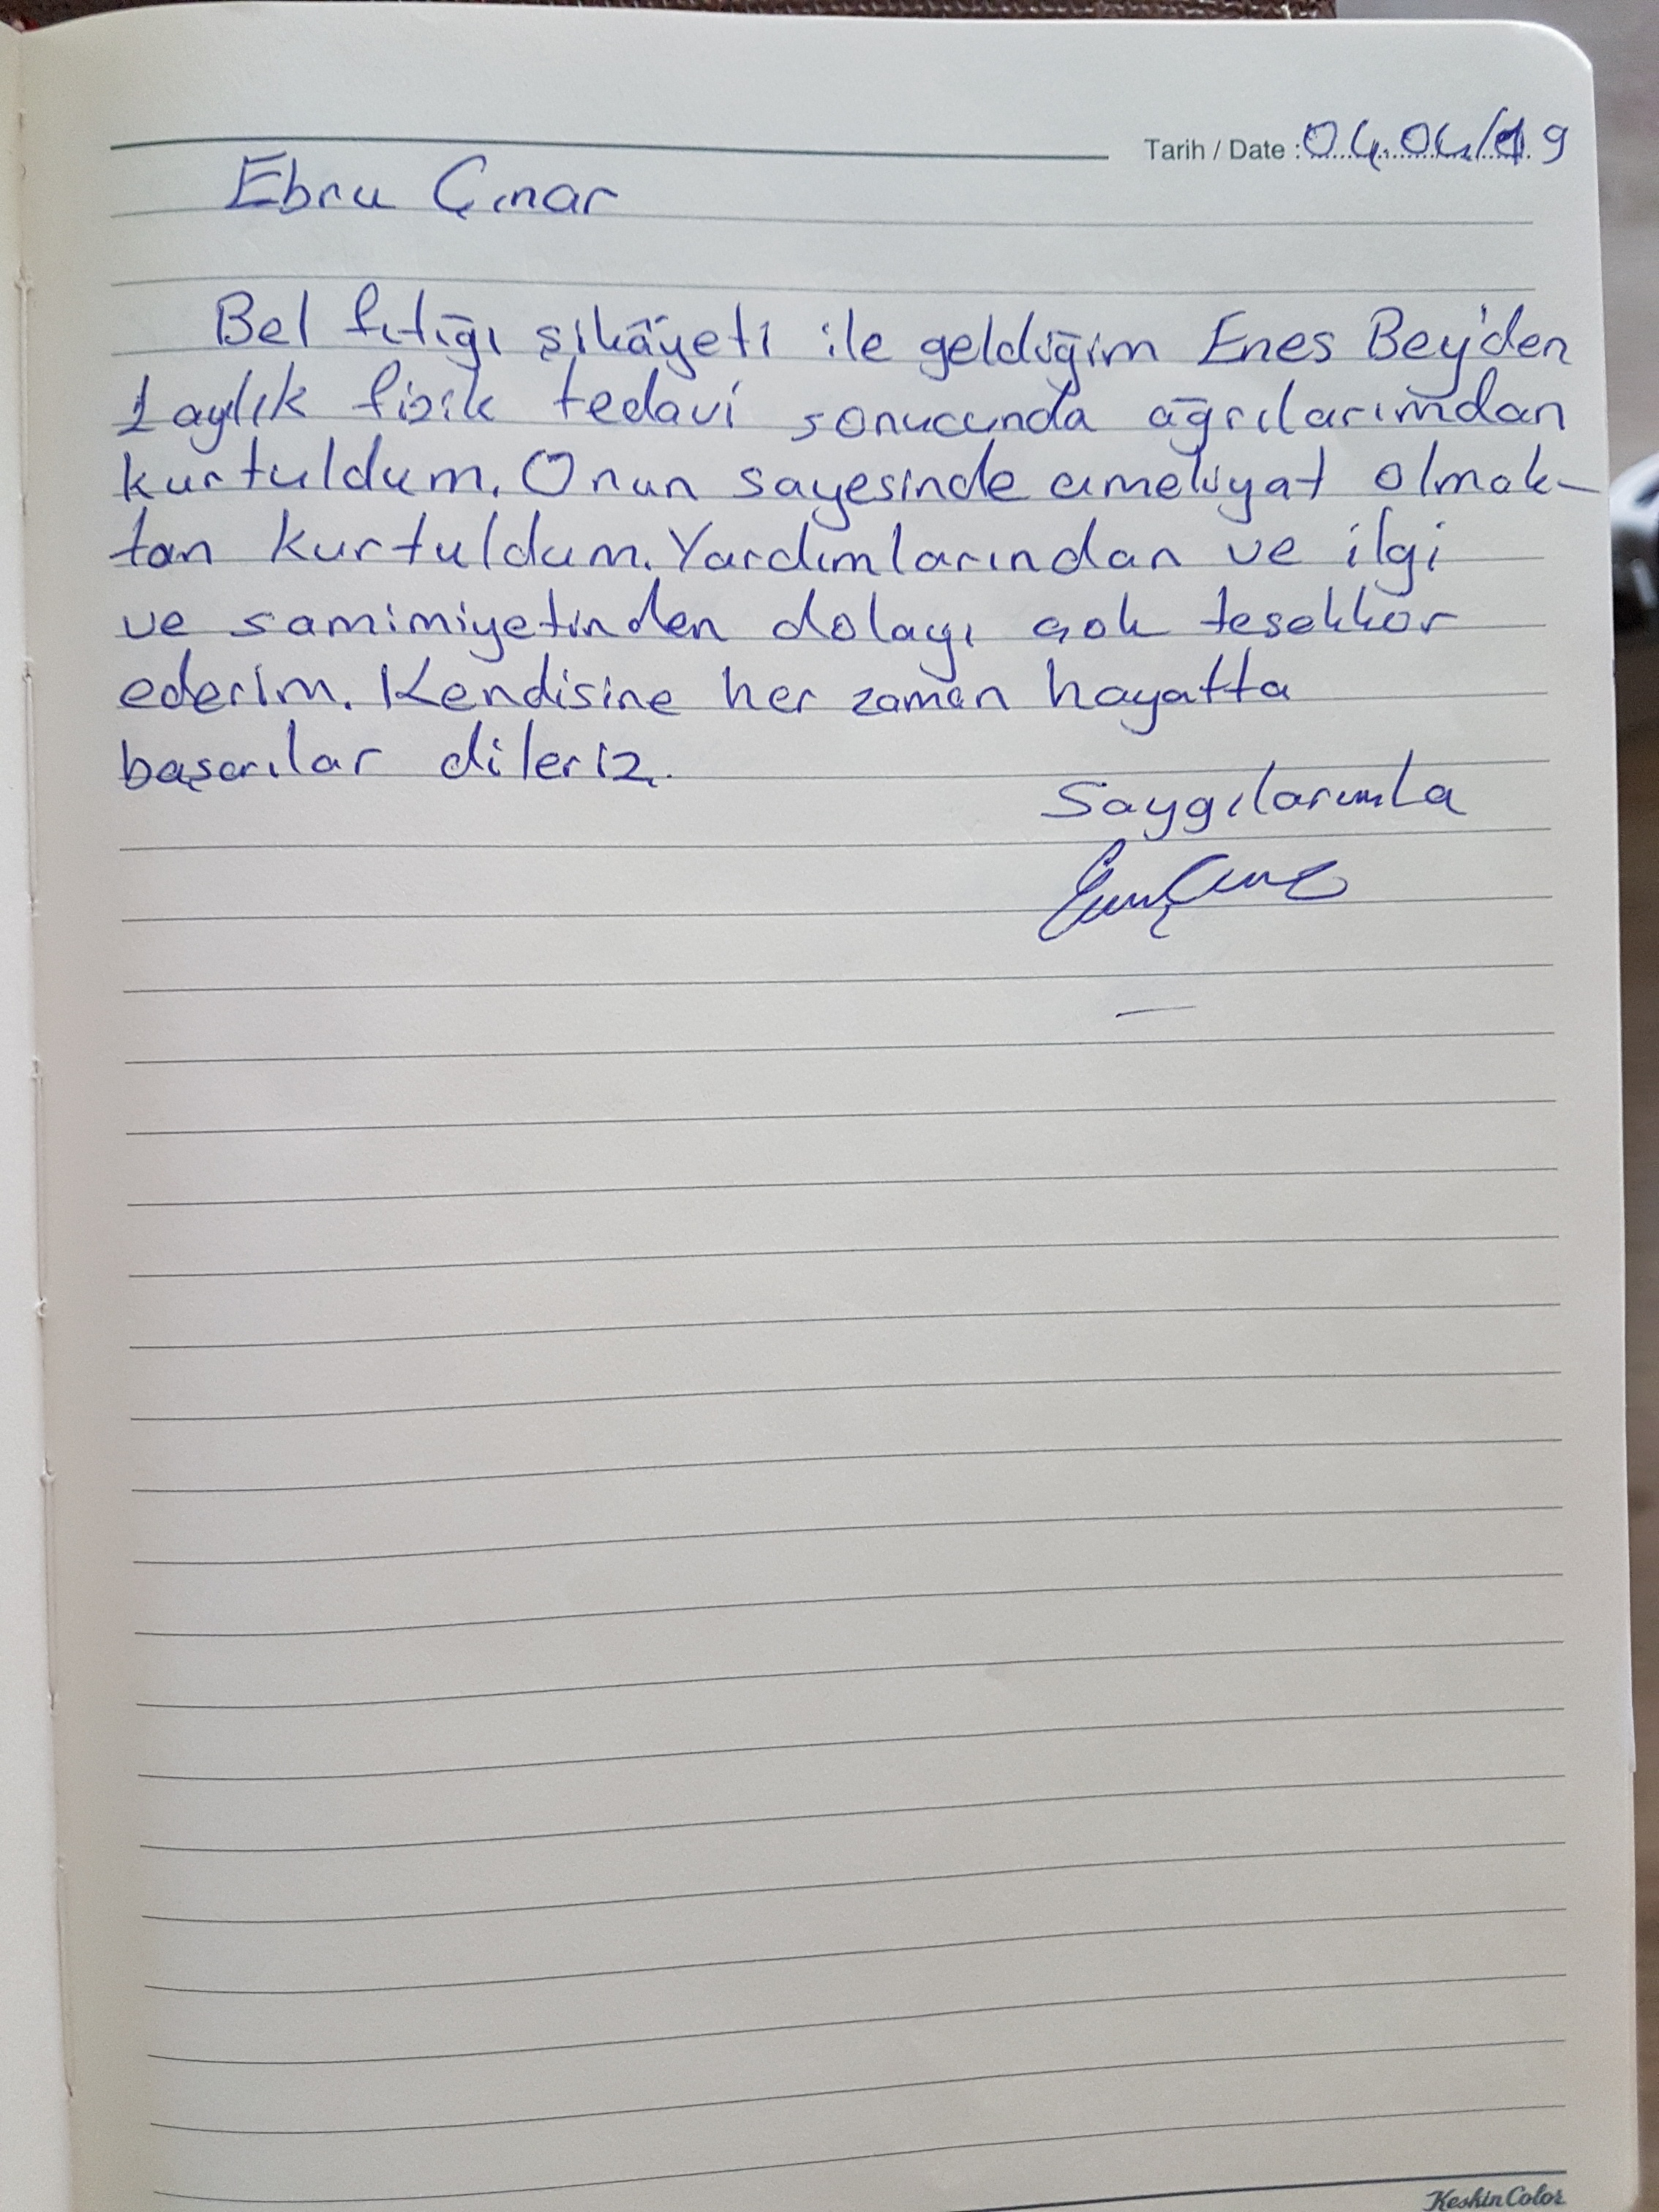 Tarih / Date : 04.04/19
Ebru Çınar
Bel fıtığı şikâyeti ile geldiğim Enes Bey'den
1 aylık fizik tedavi sonucunda ağrılarımdan
kurtuldum. Onun sayesinde ameliyat olmak-
tan kurtuldum. Yardımlarından ve ilgi
ve samimiyetinden dolayı çok teşekkür
ederim. Kendisine her zaman hayatta
başarılar dileriz.
Saygılarımla
KeskinColor